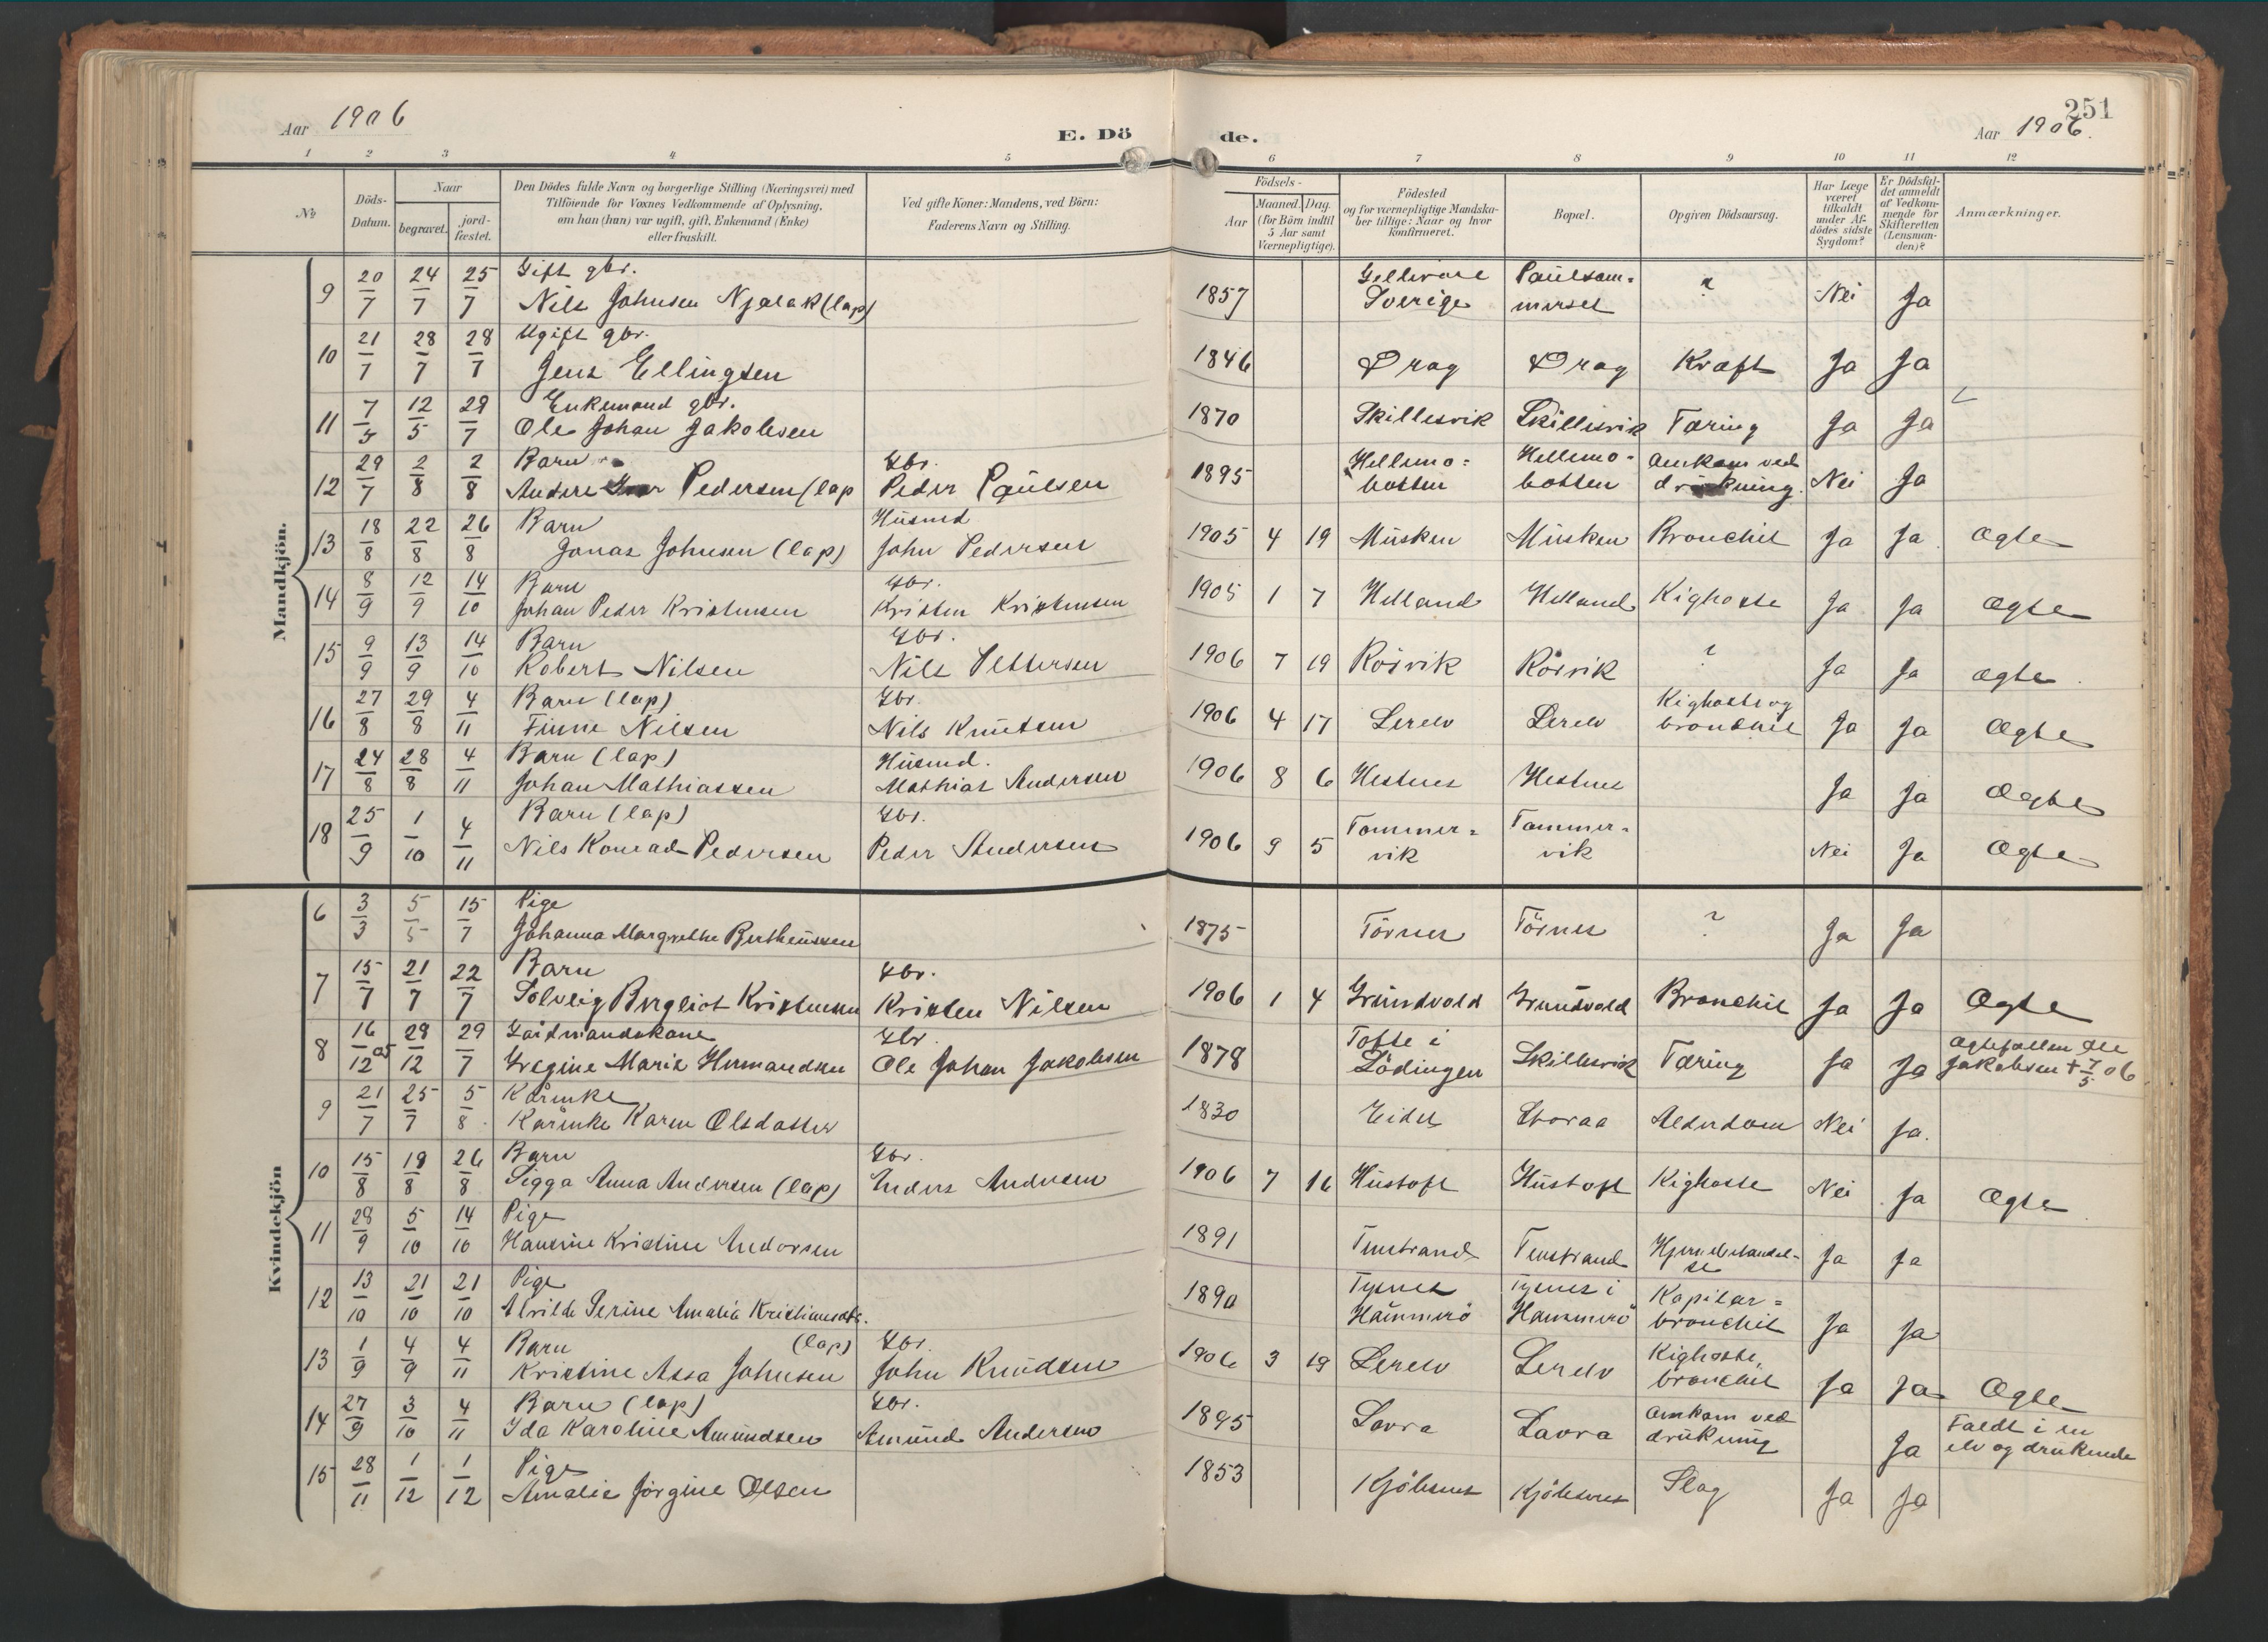 Aar 1906
E. Dö
de.
251
Aar 1906.
1 2 3 4 5 6 7 8 9 10 11 12
No
Döds-Datum.
Naar
begravet.
jord-fæstet.
Den Dödes fulde Navn og borgerlige Stilling (Næringsvei) med
Tilföiende for Voxnes Vedkommende af Oplysning,
om han (hun) var ugift, gift, Enkemand (Enke)
eller fraskilt.
Ved gifte Koner: Mandens, ved Börn:
Faderens Navn og Stilling.
Födsels-
Aar
Maaned. Dag.
(for Börn indtil
5 Aar samt
Værnepligtige).
Födested
og for værnepligtige Mandska-
ber tillige: Naar og hvor
konfirmeret.
Bopæl.
Opgiven Dödsaarsag.
Har Læge
været
tilkaldt
under Af-
dödes sidste
Sygdom?
Er Dödsfal-
det anmeldt
af Vedkom-
mende for
Skifteretten
(Lensman-
den)?
Anmærkninger.
Mandkjön.
9 20/7 24/7 25/7 Gift gbr. Nils Johnsen Njalak (lap) 1857 Gellivare Sverige Paulsommerset ? Nei Ja
10 21/7 28/7 28/7 Ugift gbr. Jens Ellingsen 1846 Drag Drag Kræft Ja Ja
11 7/5 12/5 29/7 Enkemand gbr. Ole Johan Jakobsen 1870 Skillesvik Skillesvik Tæring Ja Ja
12 29/7 2/8 2/8 Barn Andere Pedersen (lap Gbr. Peder Paulsen 1895 Hellemo= botten Hellemo- botten omkom ved drukning. Nei Ja
13 18/8 22/8 26/8 Barn Jonas Johnsen (lap) Husmd John Pedersen 1905 4 19 Musken Musken Bronchit Ja Ja Ægte
14 8/9 12/9 14/10 Barn Johan Peder Kristensen Gbr. Kristen Kristensen 1905 1 7 Helland Helland Kighoste Ja Ja Ægte
15 9/9 13/9 14/10 Barn Robert Nilsen Gbr. Nils Pettersen 1906 7 19 Rörvik Rörvik ? Ja Ja Ægte
16 27/8 29/8 4/11 Barn (lap) Finne Nilsen Gbr. Nils Knutsen 1906 4 17 Lerelv Lerelv Kighoste og bronchit Ja Ja Ægte
17 24/8 28/8 4/11 Barn (lap) Johan Mathiassen Husmd. Mathias Andersen 1906 8 6 Hestnes Hestnes Ja Ja Ægte
18 25/9 1/10 4/11 Barn (lap) Nils Konrad Pedersen Gbr. Peder Andersen 1906 9 5 Tommer= vik Tommer= vik Nei Ja Ægte
Kvindekjön
6 3/3 5/5 15/7 Pige Johanna Margrethe Bertheussen 1875 Törnes Törnes ? Ja Ja
7 15/7 21/7 22/7 Barn Solveig Bergliot Kristensen Gbr. Kristen Nilsen 1906 1 4 Grundvold Grundvold Bronchit Ja Ja Ægte
8 16/12 05 29/12 29/7 Gaardmandskone Gregine Marie Hermandsen Gbr Ole Johan Jakobsen 1878 Tofte i Lödingen Skillesvik Tæring Ja Ja Ægtefællen Ole Jakobsen + 7/5 06
9 21/7 25/7 5/8 Kårinke Kårinke Karen Olsdatter 1830 Eidet Storaa Alderdom Nei Ja.
10 15/8 19/8 26/8 Barn Sigga Anna Andersen (lap) Gbr. Enders Andersen 1906 7 16 Hustoft Hustoft Kighoste Nei Ja Ægte
11 28/9 5/10 14/10 Pige Hansine Kristine Andorsen 1891 Finstrand Finstrand Hjernebetændel- se Ja Ja
12 13/10 21/10 21/10 Pige Alvilde Perine Amalia Kristiansdtr. 1890 Tysnes Hammerö Tysnes i Hammerö Kapilar= bronchit Ja Ja
13 1/9 4/9 4/11 Barn (lap) Kristine Assa Johnsen Gbr. John Knudsen 1906 3 19 Lerelv Lerelv Kighoste, bronchit Ja Ja Ægte
14 27/9 3/10 4/11 Barn (lap) Ida Karoline Amundsen Gbr. Amund Andersen 1895 Lavra Lavra omkom ved drukning Ja Faldt i en elv og druknede
15 28/11 1/12 1/12 Pige Amalie Jörgine Olsen 1853 Kjöbsnes Kjöbsnes Slag Ja Ja